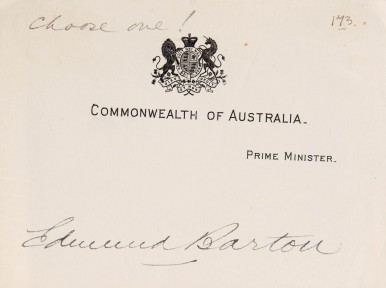 choose one!
173.
COMMONWEALTH OF AUSTRALIA.
PRIME MINISTER.
Edmund Barton